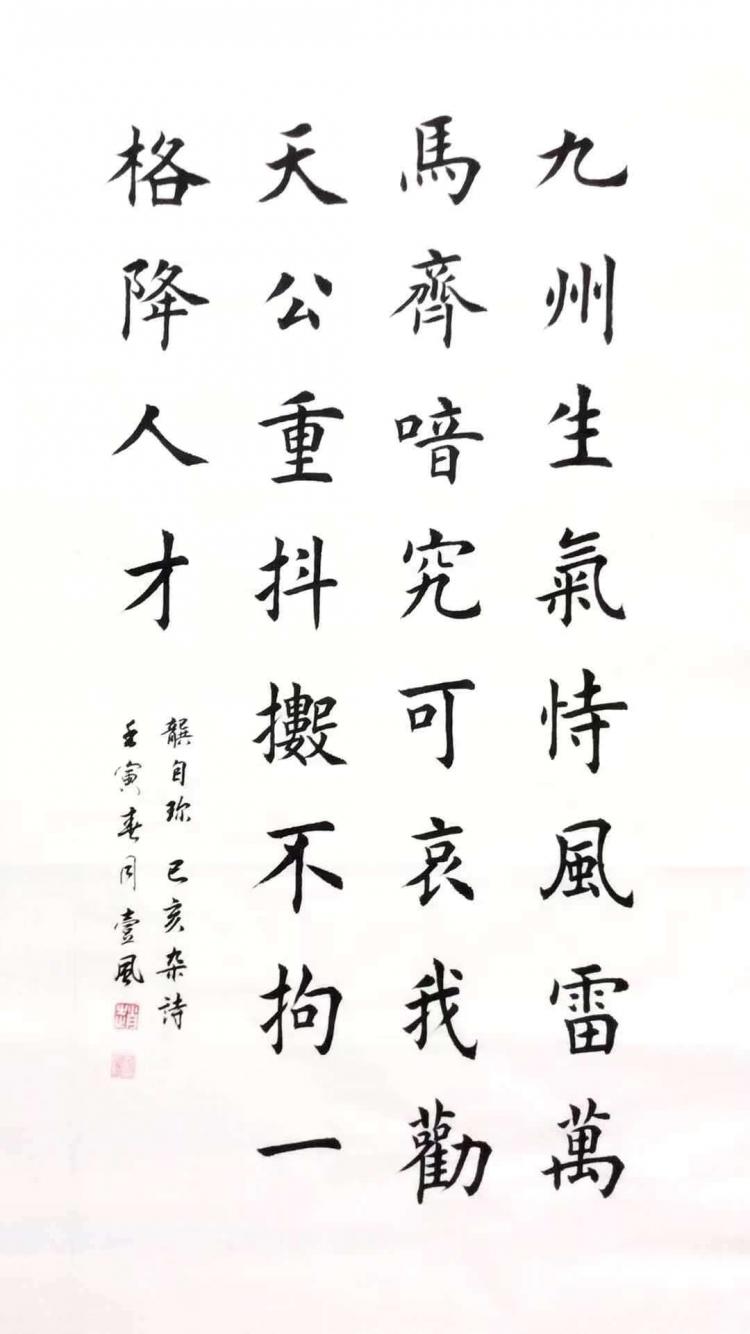 九州生氣恃風雷萬
馬齊喑究可哀我勸
天公重抖擻不拘一
格降人才
龔自珍 己亥杂詩
壬寅春 壹風